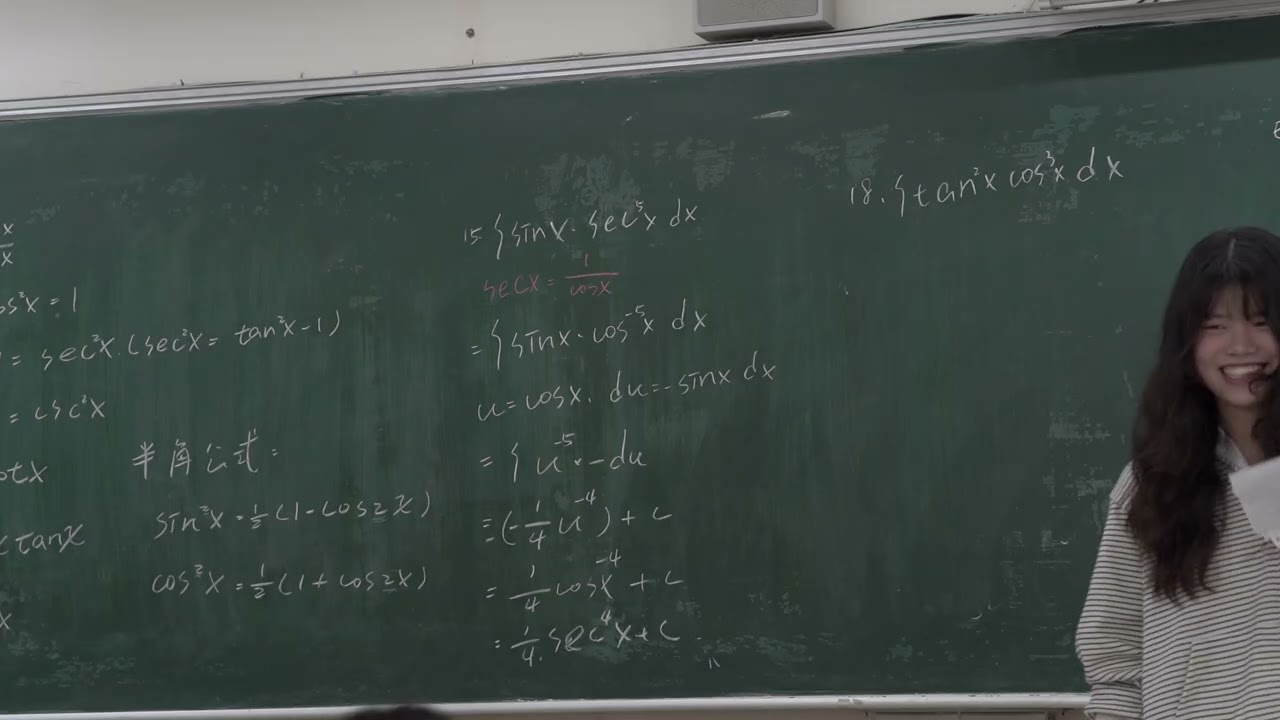 x
x
os²x = 1
= sec²x. (sec²x = tan²x - 1)
= csc²x
otx
tanx
x
半角公式:
sin²x = 1/2 (1 - cos2x)
cos²x = 1/2 (1 + cos2x)
15. ∫ sinx · sec⁵x dx
secx = 1/cosx
= ∫ sinx · cos⁻⁵x dx
u = cosx, du = -sinx dx
= ∫ u⁻⁵ · -du
= (-1/4 u⁻⁴) + c
= 1/4 cosx⁻⁴ + c
= 1/4 . sec⁴x + c
18. ∫ tan²x cos³x dx